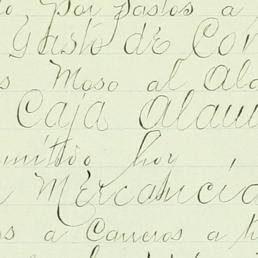 por pastos a
Gasto de Con
Moso al Ala
Caja Alau
mitido hoy
Mercancia
s a Carreros a